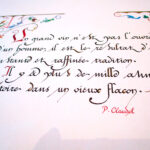 Un grand vin n'est pas l'ouvra
d'un homme, il est le résultat d'
constante et raffinée tradition.
Il y a plus de mille anné
toire dans un vieux flacon.
P. Claudel